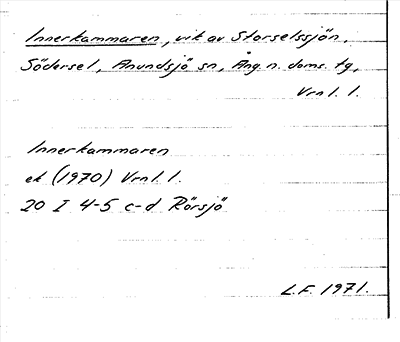 Innerkammaren, vik av Storselssjön,
Södersel, Anundsjö sn, Ång. n. doms. tg,
Vrnl. l.
Innerkammaren
ek (1970) Vrnl. l.
20 I 4-5 c-d Rörsjö
L.F. 1971.